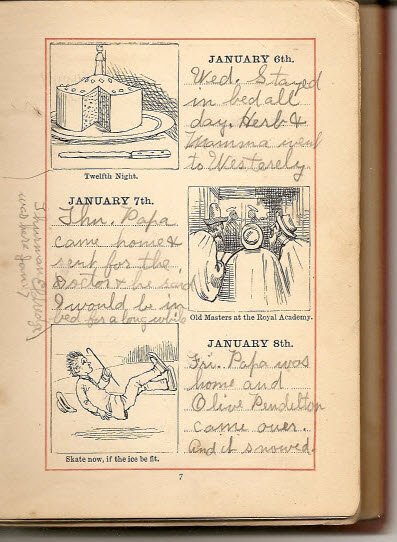 JANUARY 6th.
Wed. Stayed
in bed all
day. Herb &
Mamma went
to Westerely.
Twelfth Night.
JANUARY 7th.
Thu. Papa
came home &
sent for the
Doctor & he said
I would be in
bed for a long while
Old Masters at the Royal Academy.
JANUARY 8th.
Fri. Papa was
home and
Olive Pendelton
came over.
And it snowed.
Skate now, if the ice be fit.
7